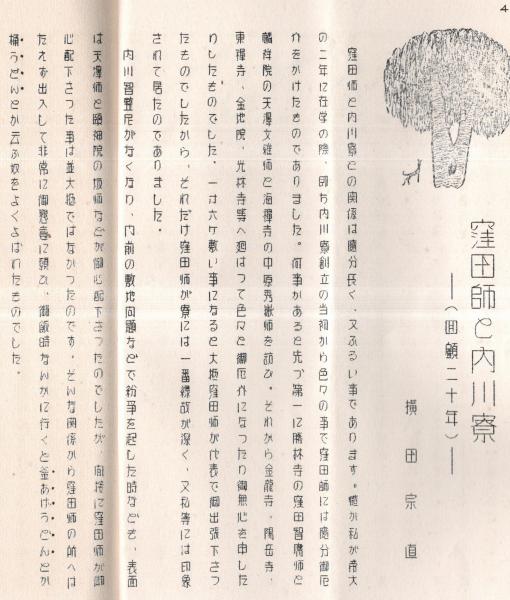 4
窪田師と内川寮
―(回顧二十年)―
横田宗直
窪田師と内川寮との関係は随分長く、又ふるい事であります。確か私が帝大
の二年に在学の際、即ち内川寮創立の当初から色々の事で窪田師には随分御厄
介をかけたものでありました。何事があると先づ第一に勝林寺の窪田智鷹師と
麟祥院の天澤文雅師と海禅寺の中原秀嶽師を訪ひ、それから金龍寺、陽岳寺、
東禅寺、金地院、光林寺等へ廻はつて色々と御厄介になつたり御無心を申した
りしたものでした。一寸六ケ敷い事になると大抵窪田師が代表で御出張下さつ
たものでしたから、それだけ窪田師が寮には一番縁故が深く、又私等には印象
されて居たのでありました。
内川智整尼がなくなり、内前の敷地問題などで紛争を起した時なども、表面
は天澤師と頤神院の坂師などが御心配下さつたのでしたが、直接に窪田師が御
心配下さつた事は並大抵ではなかつたのです。そんな関係から窪田師の前へは
たえず出入して非常に御懇意に願ひ、御飯時なんかに行くと釜あげうどんとか
桶うどんとか云ふ奴をよくよばれたものでした。